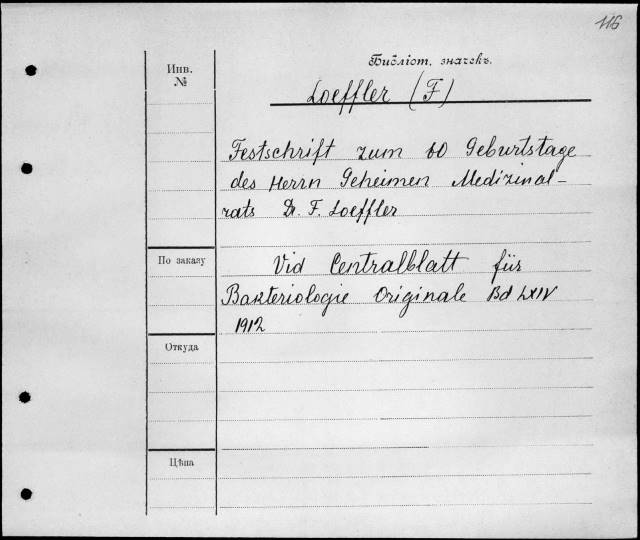 116
Библіот. значекъ.
Инв.
№
Loeffler (F)
Festschrift zum 60 Geburtstage
des Herrn Geheimen Medizinal-
rats Dr. F. Loeffler
По заказу
Vid Centralblatt für
Bakteriologie Originale Bd LXIV
1912
Откуда
Цѣна